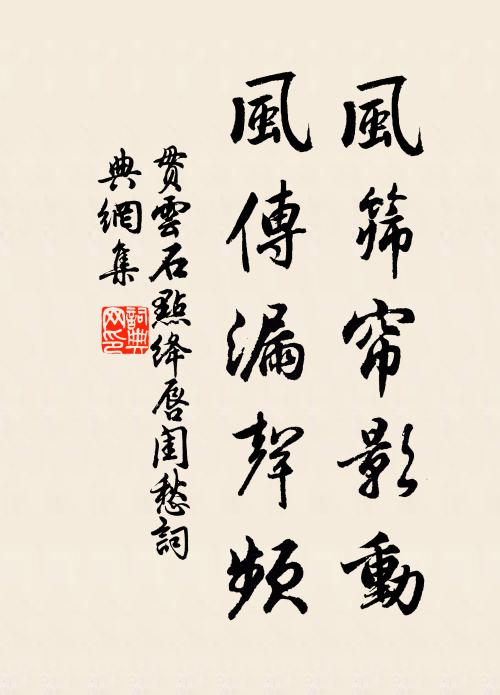 風篩帘影動
風傳漏聲頻
貫雲石點絳唇閨愁詞
典網集
詞典
网印